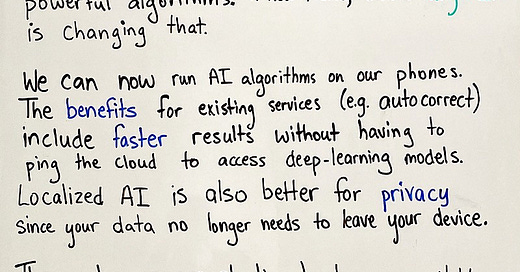 powerful algorithms.
is changing that.
We can now run AI algorithms on our phones.
The benefits for existing services (e.g. autocorrect)
include faster results without having to
ping the cloud to access deep-learning models.
Localized AI is also better for privacy
since your data no longer needs to leave your device.